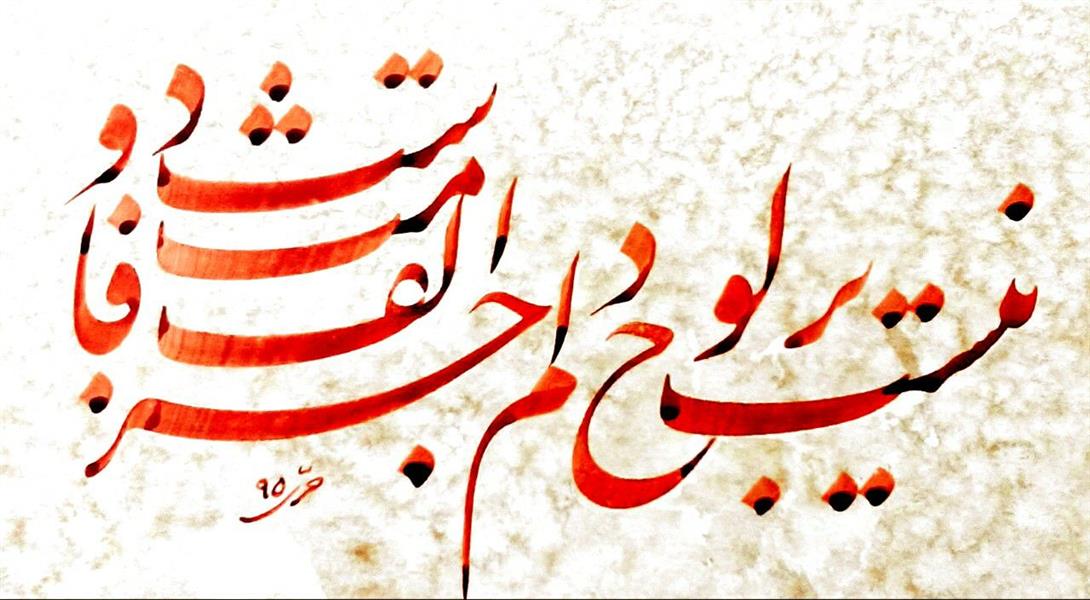 نیست بر لوح دلم جز الف قامت دوست
۹۵